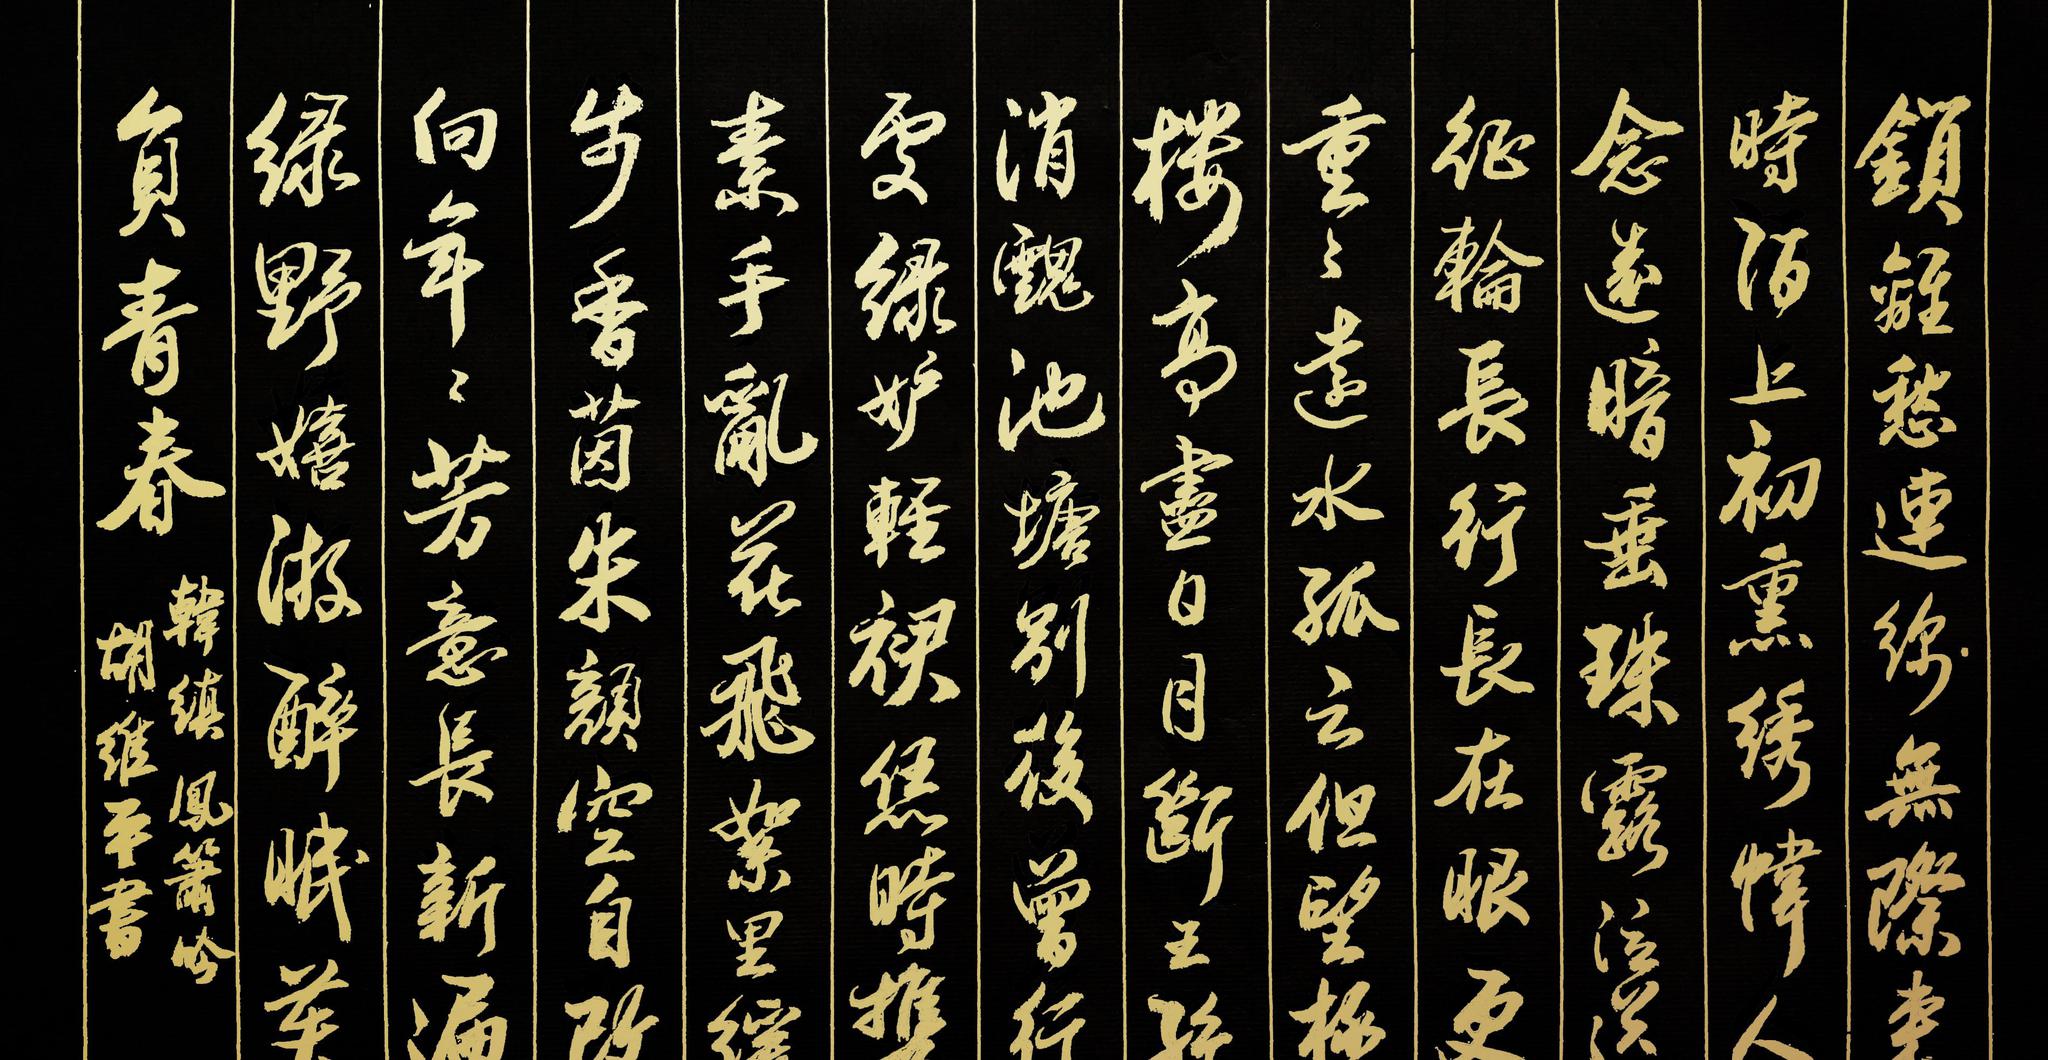 鎖離愁連綿無際来
時陌上初熏綉幃人
念遠暗垂珠露泣送
征輪長行長在眼更
重〻遠水孤云但望極
楼高盡日目斷王孫
消魂池塘別後曾行
處緑妒輕裙恁時携
素手亂花飛絮里緩
步香茵朱顏空自改
向年〻芳意長新遍
緑野嬉游醉眠莫
負青春
韓縝鳳簫吟
胡維平書